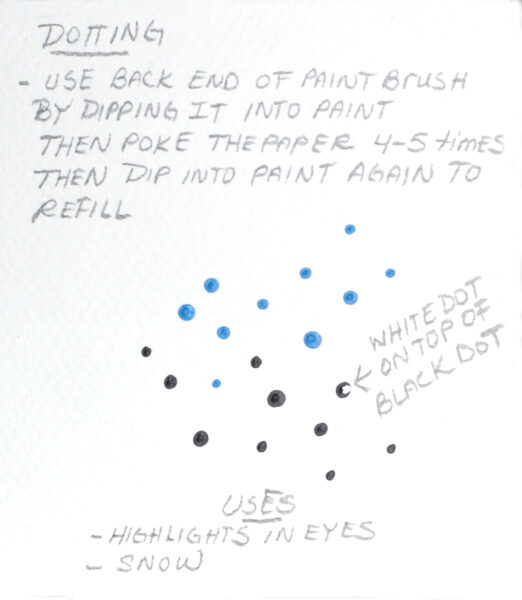 DOTTING
- USE BACK END OF PAINT BRUSH
BY DIPPING IT INTO PAINT
THEN POKE THE PAPER 4-5 times
THEN DIP INTO PAINT AGAIN TO
REFILL
WHITE DOT
ON TOP OF
BLACK DOT
USES
- HIGHLIGHTS IN EYES
- SNOW